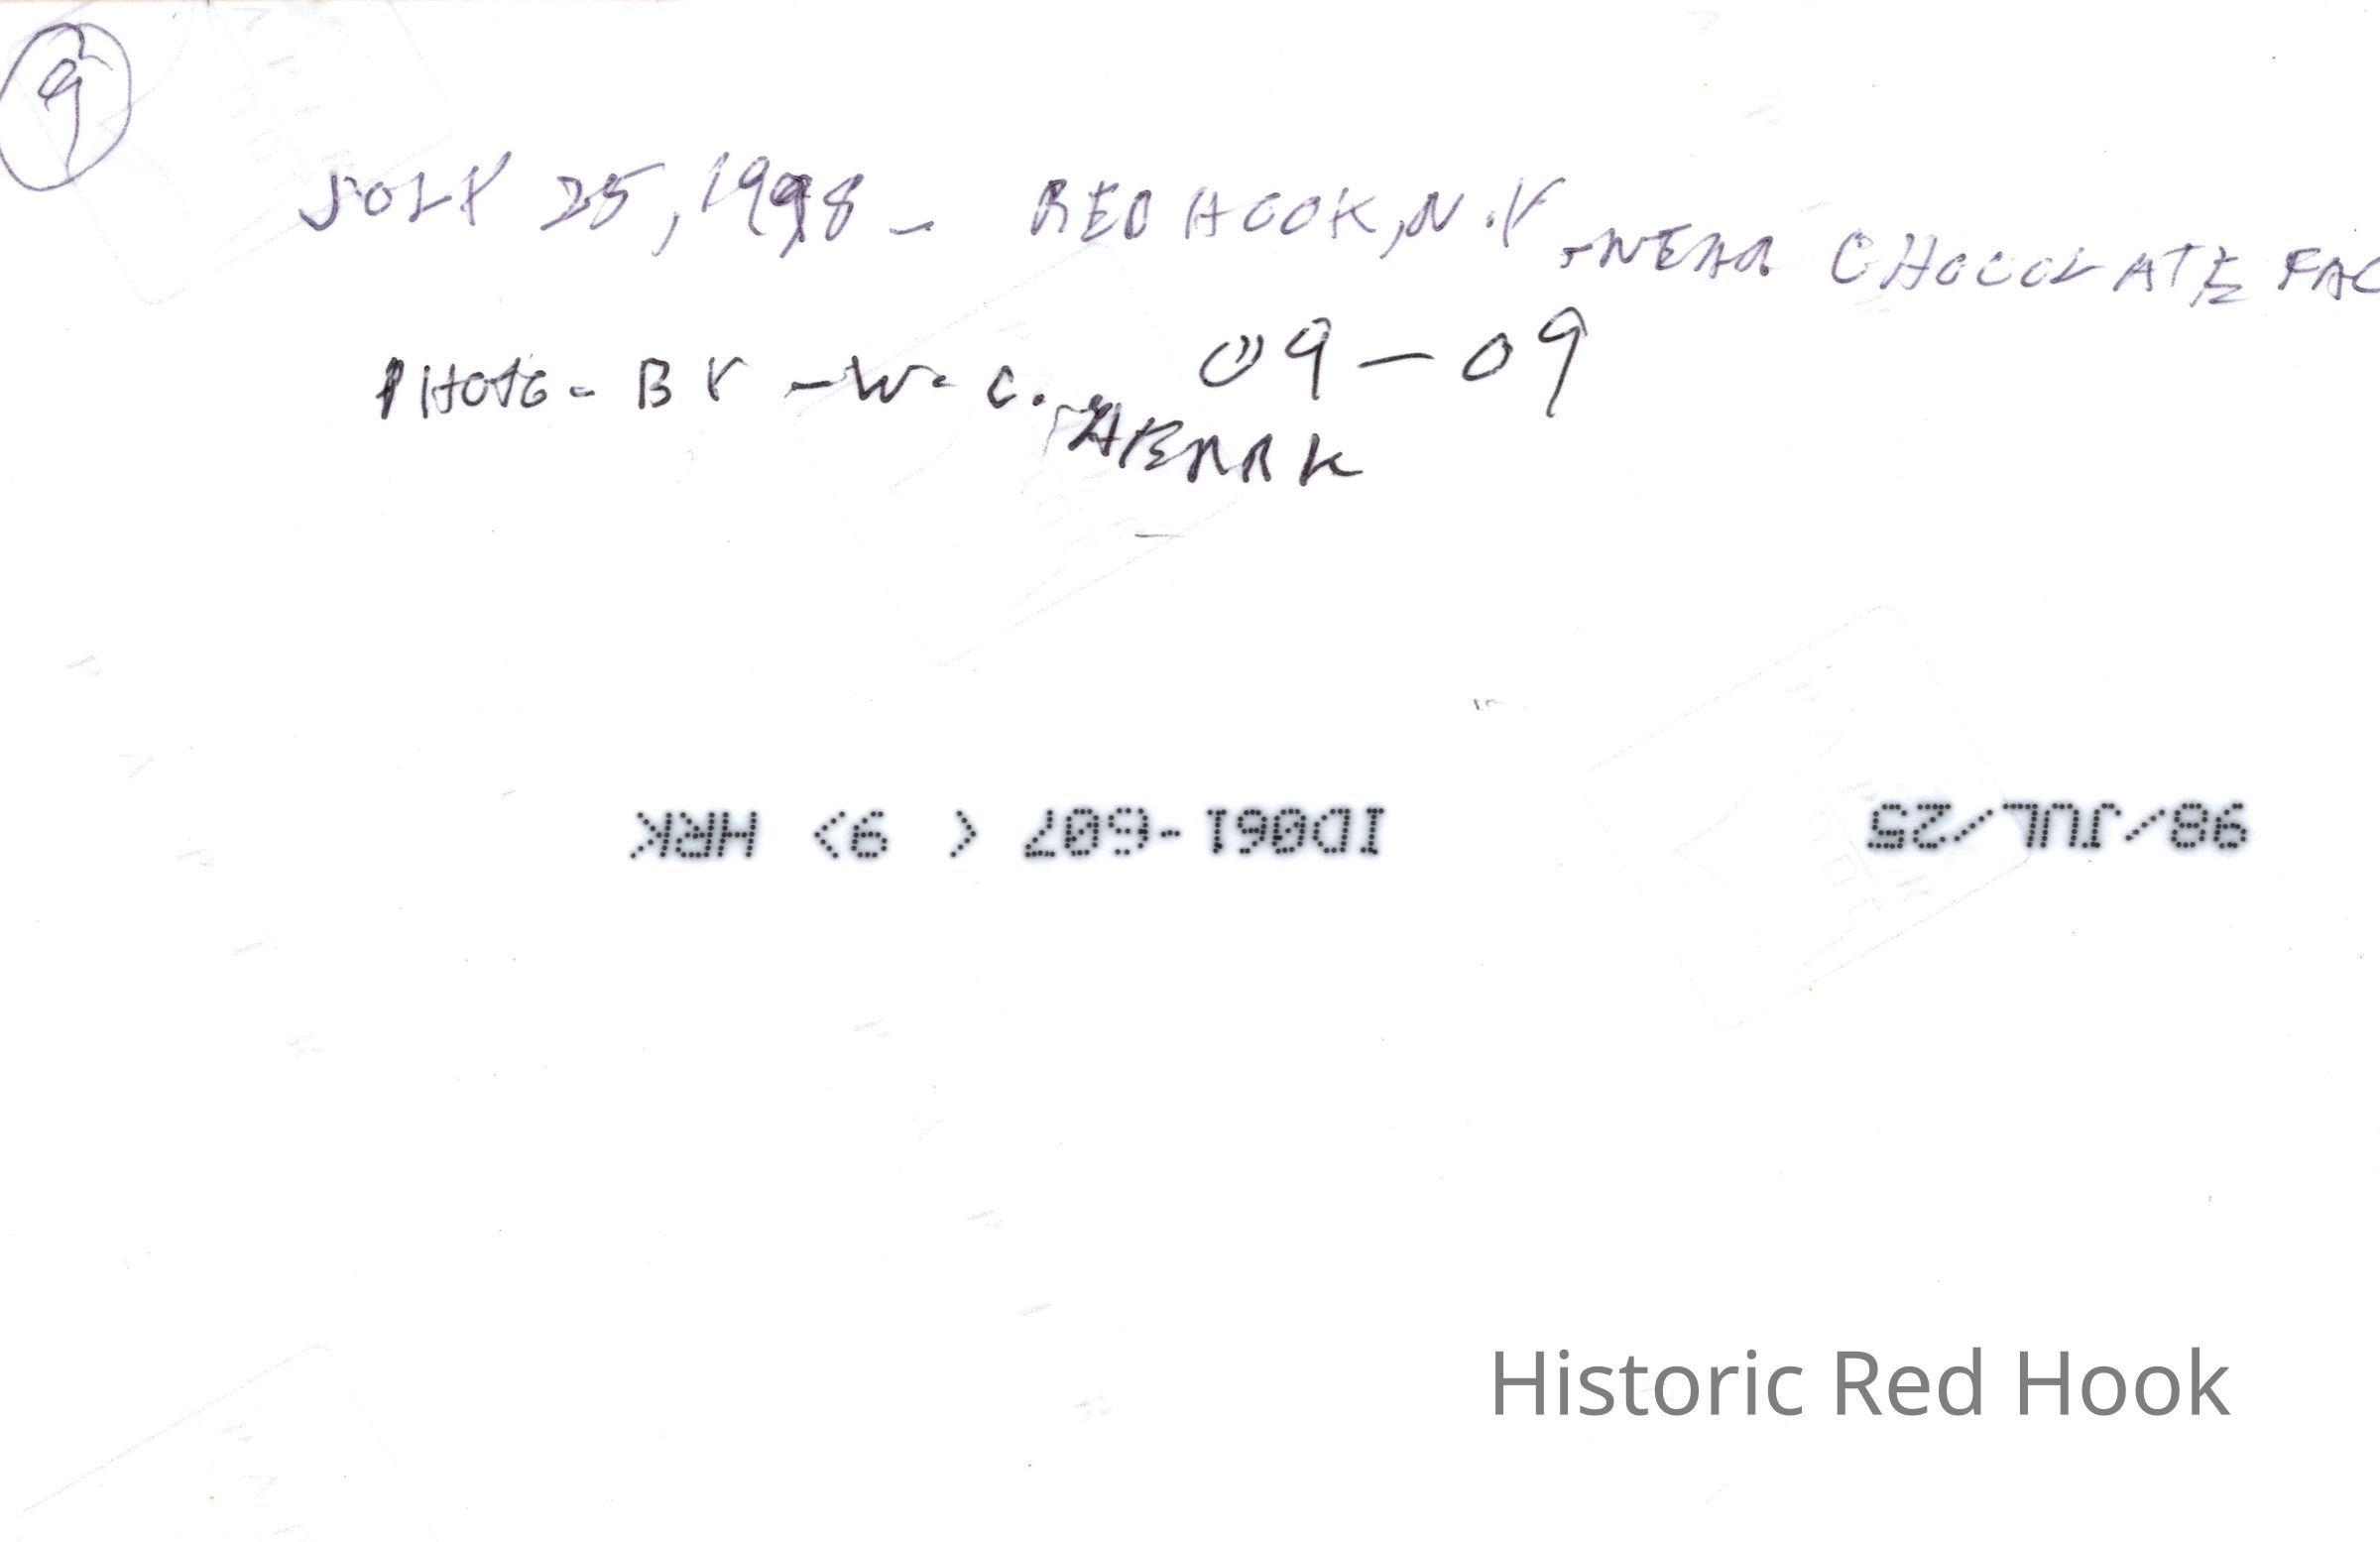 9
JULY 25, 1998 - RED HOOK, N.Y. - NEAR CHOCOLATE FAC
PHOTO - BY - W. C.
09-09
98/JUL/25 ID061-607 < 9> HRK
Historic Red Hook